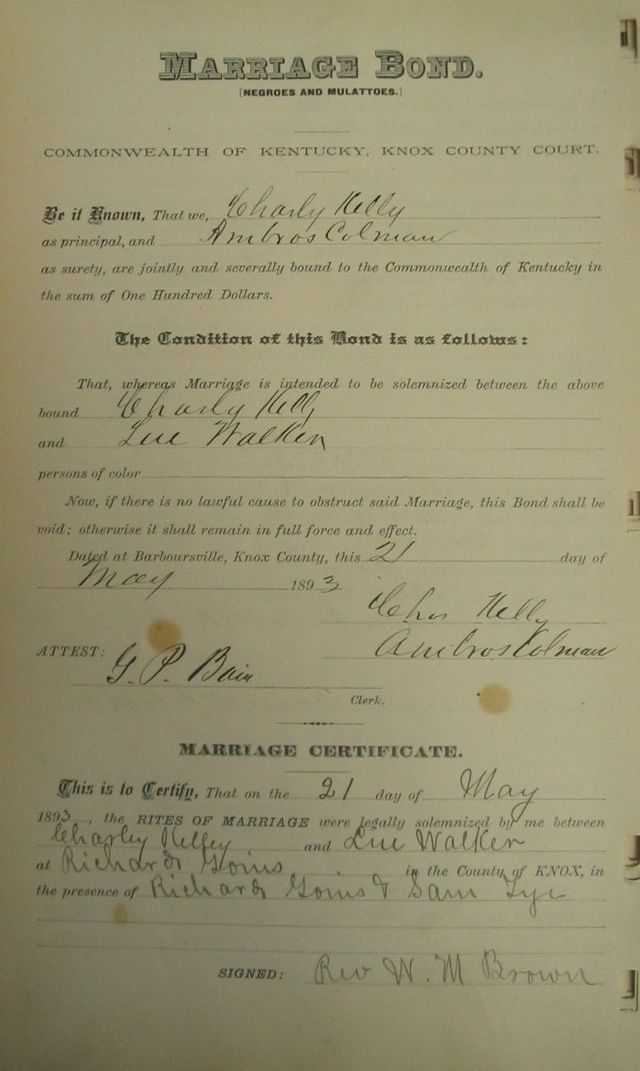 MARRIAGE BOND.
[NEGROES AND MULATTOES.]
COMMONWEALTH OF KENTUCKY, KNOX COUNTY COURT.
Be it Known, That we, Charly Kelly
as principal, and Ambros Colman
as surety, are jointly and severally bound to the Commonwealth of Kentucky in
the sum of One Hundred Dollars.
The Condition of this Bond is as follows:
That, whereas Marriage is intended to be solemnized between the above
bound Charly Kelly
and Lue Walker
persons of color
Now, if there is no lawful cause to obstruct said Marriage, this Bond shall be
void; otherwise it shall remain in full force and effect.
Dated at Barboursville, Knox County, this 21 day of
May 1893
Chas Kelly
ATTEST: Ambros Colman
G. P. Bain
Clerk.
MARRIAGE CERTIFICATE.
This is to Certify, That on the 21 day of May
1893, the RITES OF MARRIAGE were legally solemnized by me between
Charley Kelley and Lue Walker
at Richard Goins in the County of KNOX, in
the presence of Richard Goins & Sam Tye
SIGNED: Rev W. M Brown